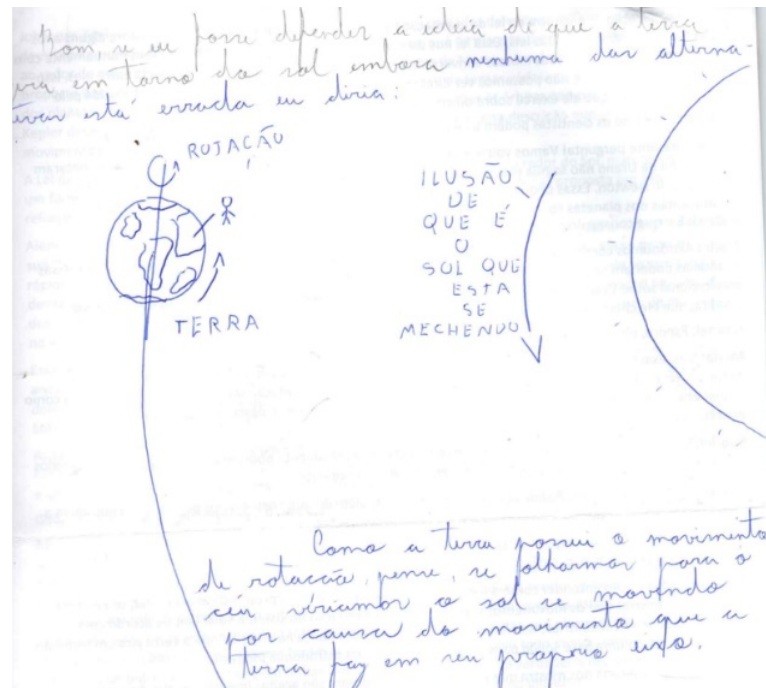 Bom, se eu fosse defender a ideia de que a terra
gira em torno do sol embora nenhuma das alterna-
tivas está errada eu diria:
ROTAÇÃO
TERRA
ILUSÃO
DE
QUE É
O
SOL QUE
ESTA
SE
MECHENDO
Como a terra possui o movimento
de rotaccão, pense, se folharmos para o
céu viriamos o sol se movendo
por causa do movimento que a
terra faz em seu proprio eixo.